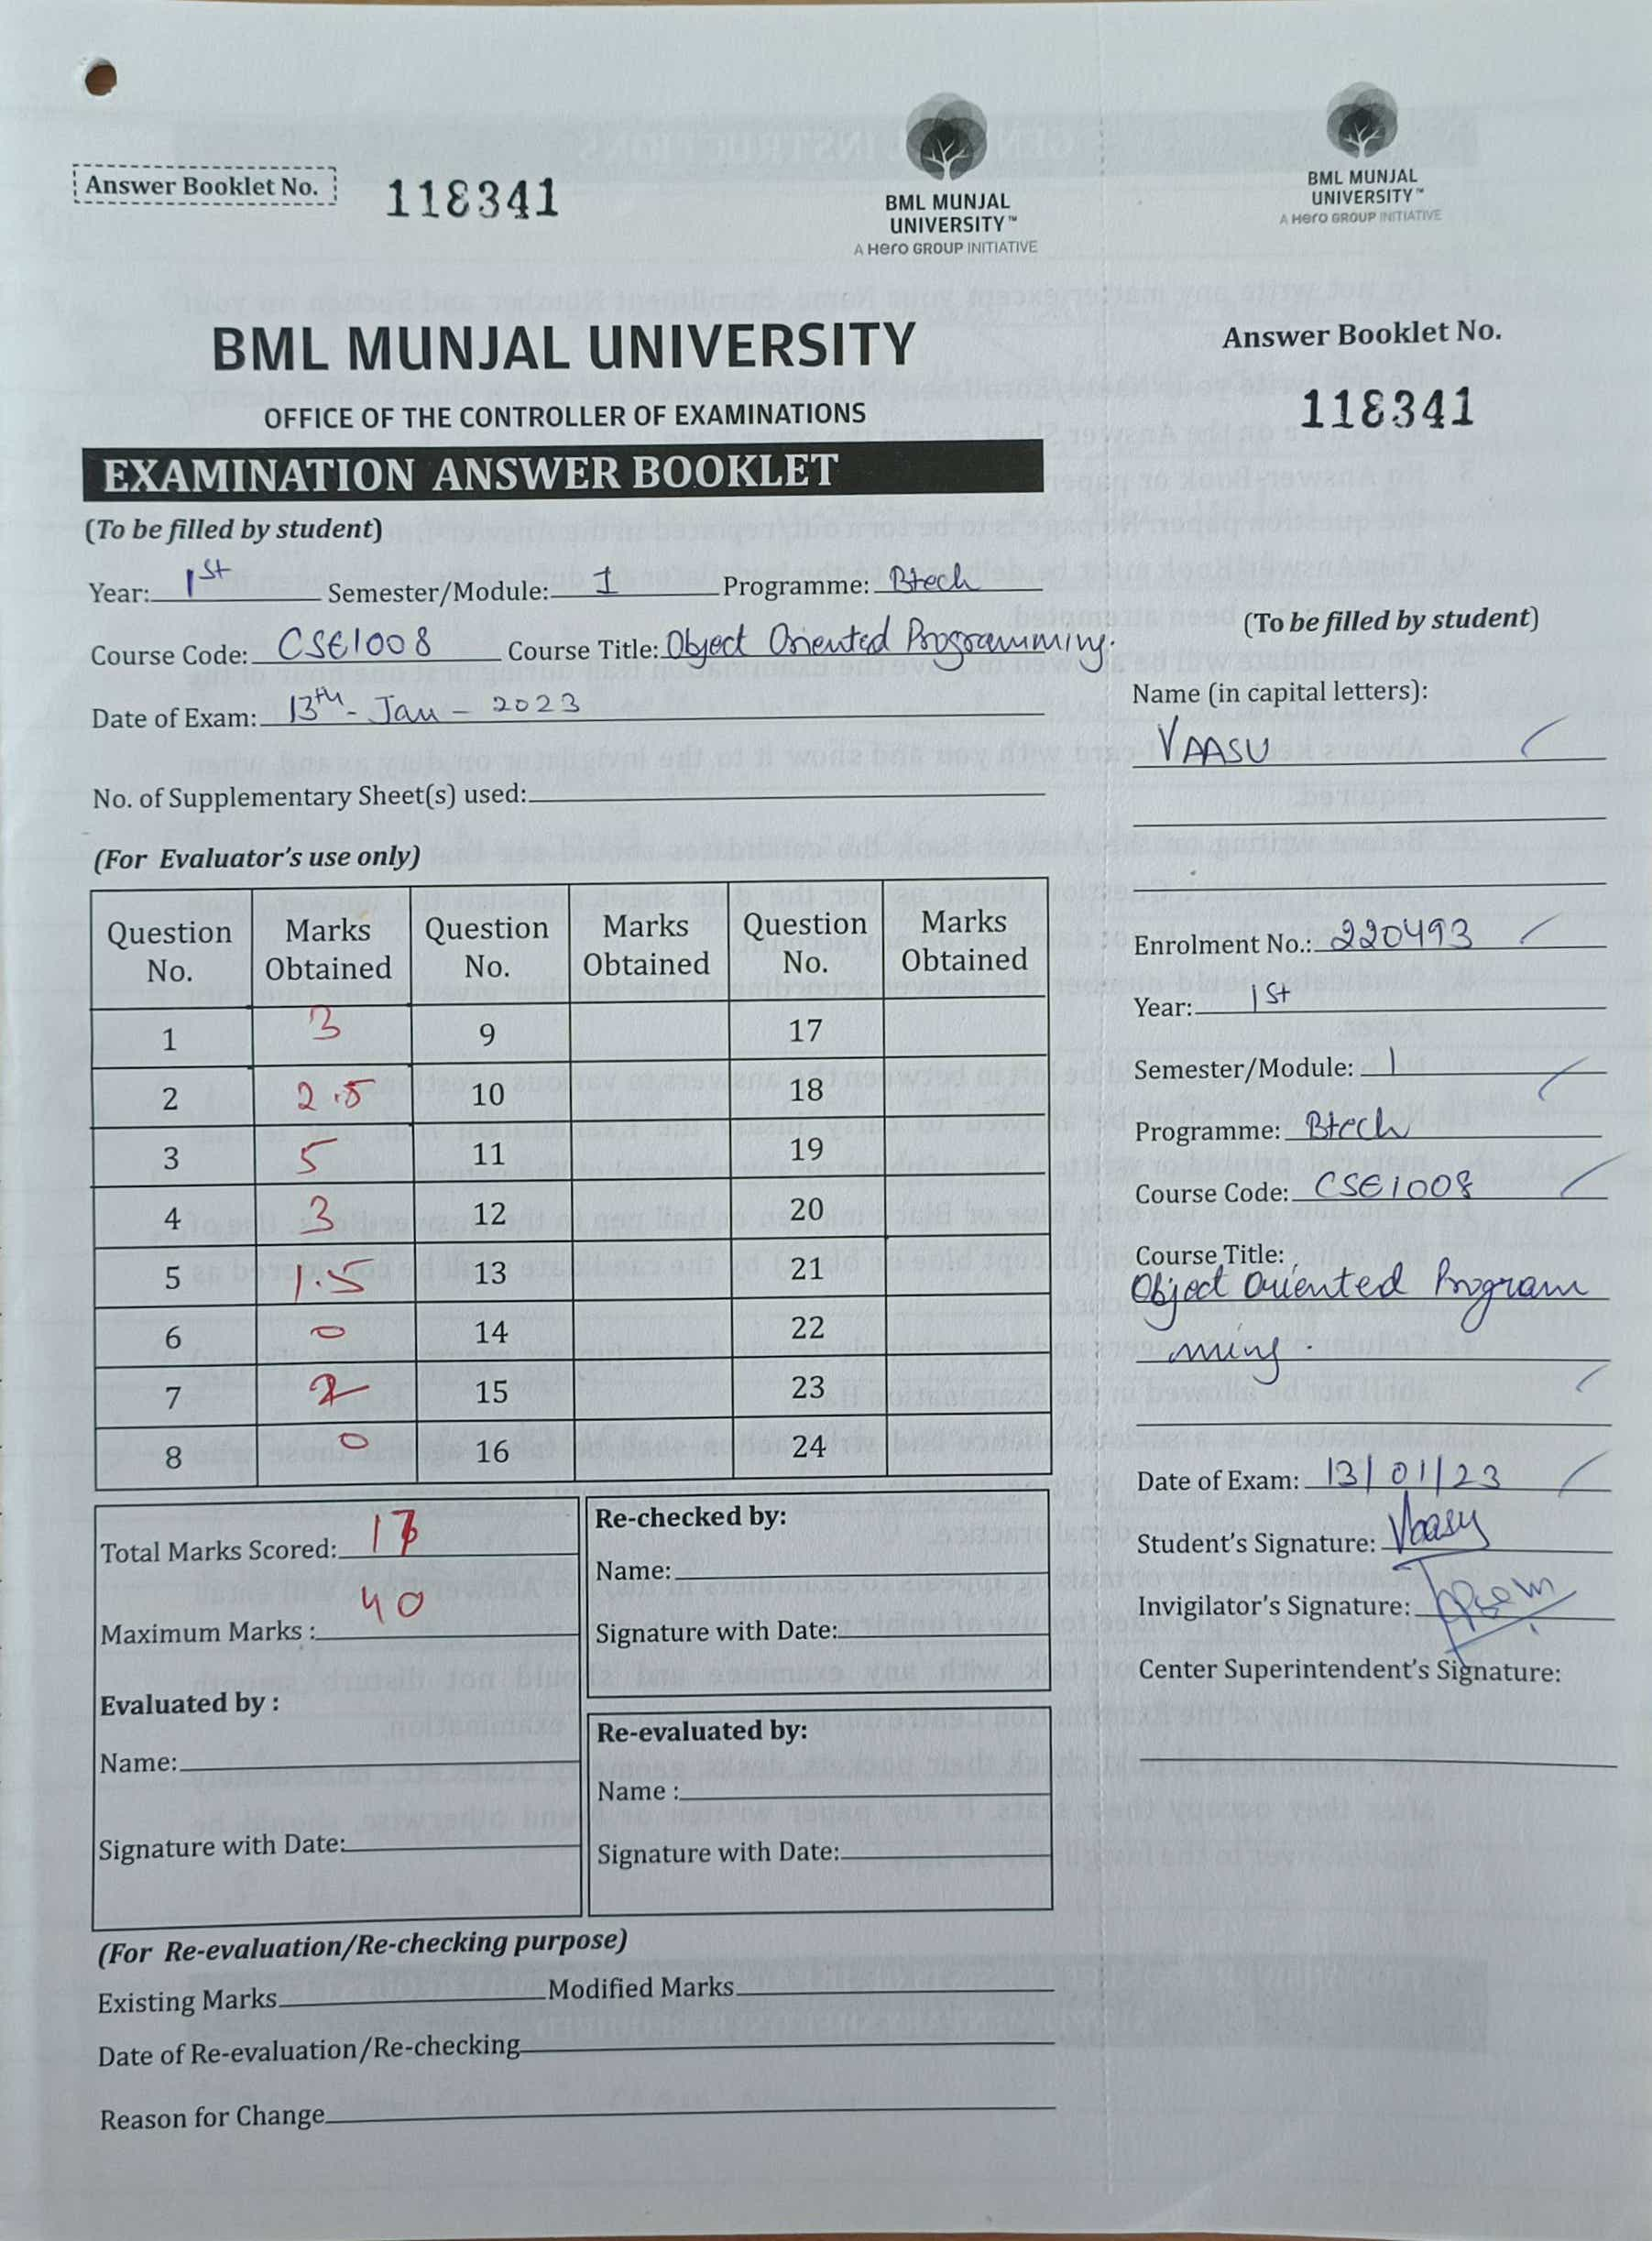 Answer Booklet No. 118341
BML MUNJAL
UNIVERSITY™
A Hero GROUP INITIATIVE
BML MUNJAL
UNIVERSITY™
A Hero GROUP INITIATIVE
BML MUNJAL UNIVERSITY
OFFICE OF THE CONTROLLER OF EXAMINATIONS
EXAMINATION ANSWER BOOKLET
(To be filled by student)
Year: 1st Semester/Module: I Programme: Btech
Course Code: CSE1008 Course Title: Object Oriented Programming.
Date of Exam: 13th - Jan - 2023
No. of Supplementary Sheet(s) used:
(For Evaluator's use only)
Question No. Marks Obtained Question No. Marks Obtained Question No. Marks Obtained
1 3 9 17
2 2.5 10 18
3 5 11 19
4 3 12 20
5 1.5 13 21
6 0 14 22
7 2 15 23
8 0 16 24
Total Marks Scored: 17
Maximum Marks : 40
Evaluated by :
Name:
Signature with Date:
Re-checked by:
Name:
Signature with Date:
Re-evaluated by:
Name :
Signature with Date:
(For Re-evaluation/Re-checking purpose)
Existing Marks Modified Marks
Date of Re-evaluation/Re-checking
Reason for Change
Answer Booklet No.
118341
(To be filled by student)
Name (in capital letters):
VAASU
Enrolment No.: 220493
Year: 1st
Semester/Module: 1
Programme: Btech
Course Code: CSE1008
Course Title:
Object Oriented Program
ming.
Date of Exam: 13/01/23
Student's Signature: Vaasu
Invigilator's Signature:
Center Superintendent's Signature: